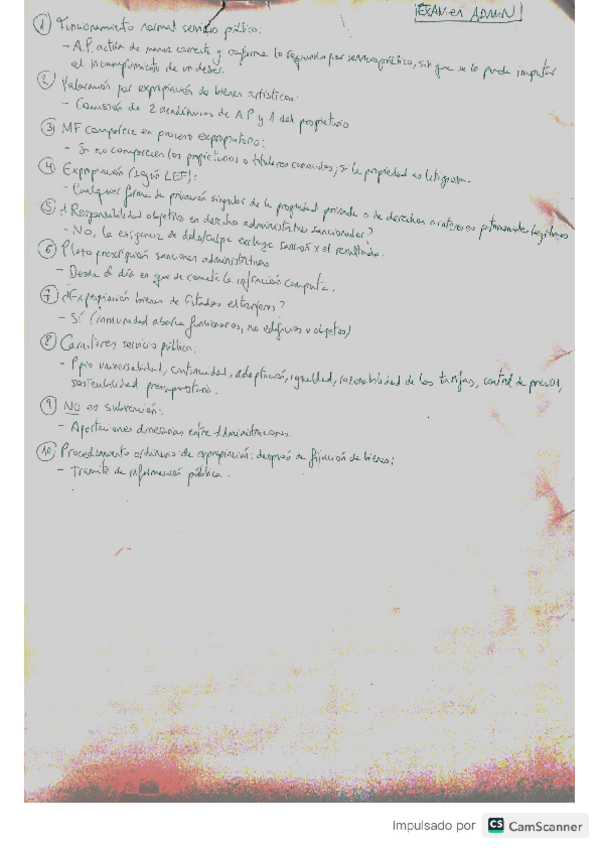 EXAMEN ADMIN
① Funcionamiento normal servicio público:
- A.P. actúa de manera correcta y conforme lo requerido por servicio público, sin que se le pueda imputar
el incumplimiento de un deber.
② Valoración por expropiación de bienes artísticos.
- Comisión de 2 académicos de AP y 1 del propietario
③ MF comparece en proceso expropiatorio:
- Si no comparecen los propietarios o titulares conocidos, si la propiedad es litigiosa.
④ Expropiación (según LEF):
- Cualquier forma de privación singular de la propiedad privada o de derechos o intereses patrimoniales legítimos
⑤ ¿Responsabilidad objetiva en derecho administrativo sancionador?
- No, la exigencia de dolo/culpa excluye sanción x el resultado.
⑥ Plazo prescripción sanciones administrativas
- Desde el día en que se comete la infracción computa.
⑦ ¿Expropiación bienes de Estados extranjeros?
- Sí (inmunidad abarca funcionarios, no edificios u objetos)
⑧ Caracteres servicio público:
- Ppio universalidad, continuidad, adaptación, igualdad, razonabilidad de las tarifas, control de precios,
sostenibilidad presupuestaria.
⑨ NO es subvención:
- Aportaciones dinerarias entre Administraciones.
⑩ Procedimiento ordinario de expropiación: después de fijación de bienes:
- Trámite de información pública.
Impulsado por CS CamScanner